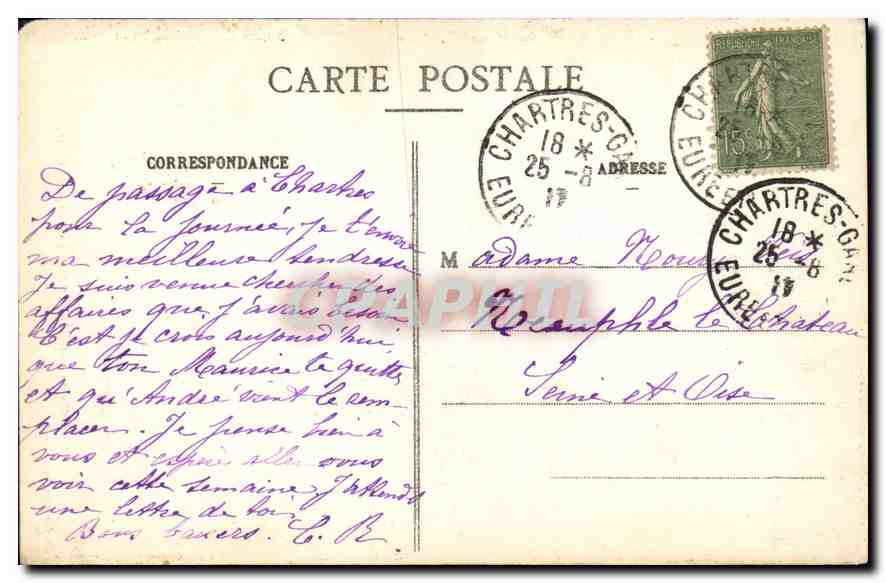 CARTE POSTALE
RÉPUBLIQUE FRANÇAISE
15c
CHARTRES-GARE
18 *
25 -8
17
EURE
CHARTRES-GARE
18 *
25 -8
17
EURE
CORRESPONDANCE
ADRESSE
De passage à Chartres
pour la journée, je t'envoie
ma meilleure tendresse
Je suis venue chercher des
affaires que j'avais besoin
C'est je crois aujourd'hui
que ton Maurice te quitte
et qu'André vient le rem-
placer. Je pense bien à
vous et espère aller vous
voir cette semaine J'attends
une lettre de toi
Bons baisers. C. R
Madame
Neauphle le Château
Seine et Oise
CPAPHIL